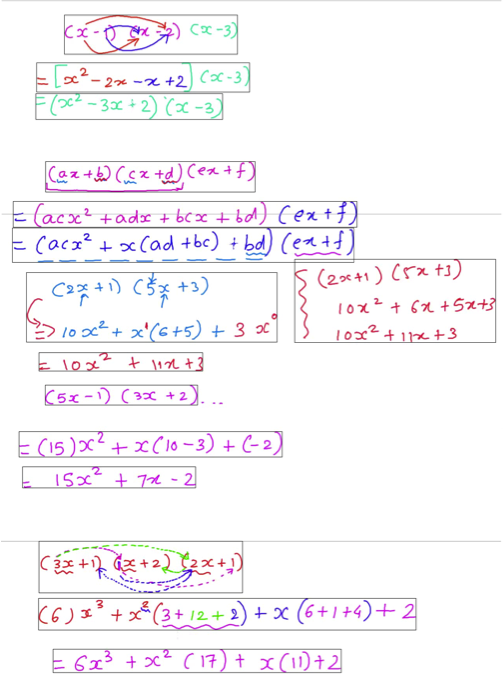 (x-1) (x-2) (x-3)
= [x² - 2x - x + 2] (x-3)
= (x² - 3x + 2) (x-3)
(ax+b) (cx+d) (ex+f)
= (acx² + adx + bcx + bd) (ex+f)
= (acx² + x(ad+bc) + bd) (ex+f)
(2x+1) (5x+3)
=> 10x² + x¹(6+5) + 3x⁰
= 10x² + 11x+3
(2x+1) (5x+3)
10x² + 6x + 5x+3
10x² + 11x + 3
(5x-1) (3x+2)...
= (15)x² + x(10-3) + (-2)
= 15x² + 7x - 2
(3x+1) (1x+2) (2x+1)
(6)x³ + x²(3+12+2) + x(6+1+4) + 2
= 6x³ + x²(17) + x(11)+2